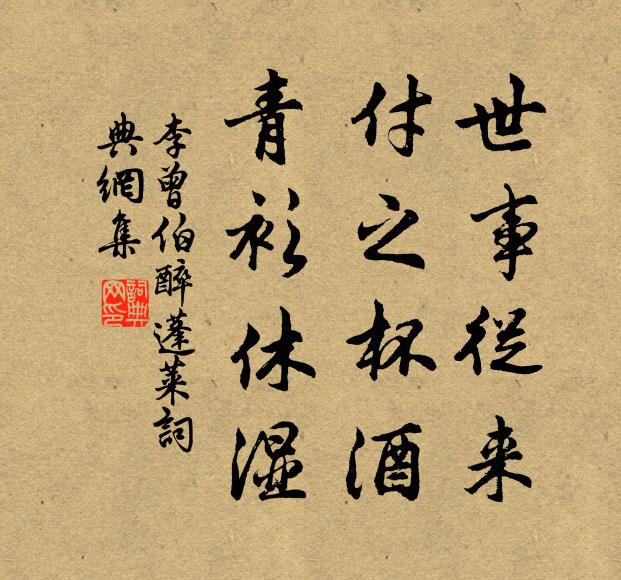 世事從来
付之杯酒
青衫休濕
李曾伯醉蓬莱詞
典網集
詞典网印